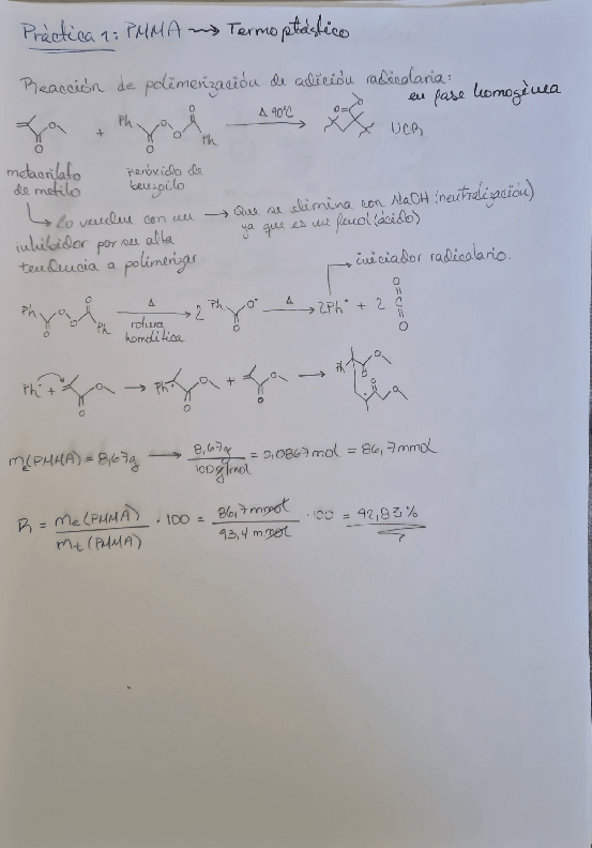 Práctica 1: PMMA → Termoplástico
Reacción de polimerización de adición radicalaria:
en fase homogénea
Ph O O O Ph O
+ Δ 90°C
metacrilato de metilo
peróxido de benzoilo
Lo venden con un inhibidor por su alta tendencia a polimerizar
→ Que se elimina con NaOH (neutralización)
ya que es un fenol (ácido)
iniciador radicalario.
Ph O O O Ph → Δ rotura homolítica 2 Ph O O· → Δ 2Ph· + 2 O=C=O
Ph· + → Ph + → Ph
me(PMMA) = 8,67g → 8,67g / 100g/mol = 0,0867 mol = 86,7 mmol
R = me(PMMA) / mt(PMMA) · 100 = 86,7 mmol / 93,4 mmol · 100 = 92,83%